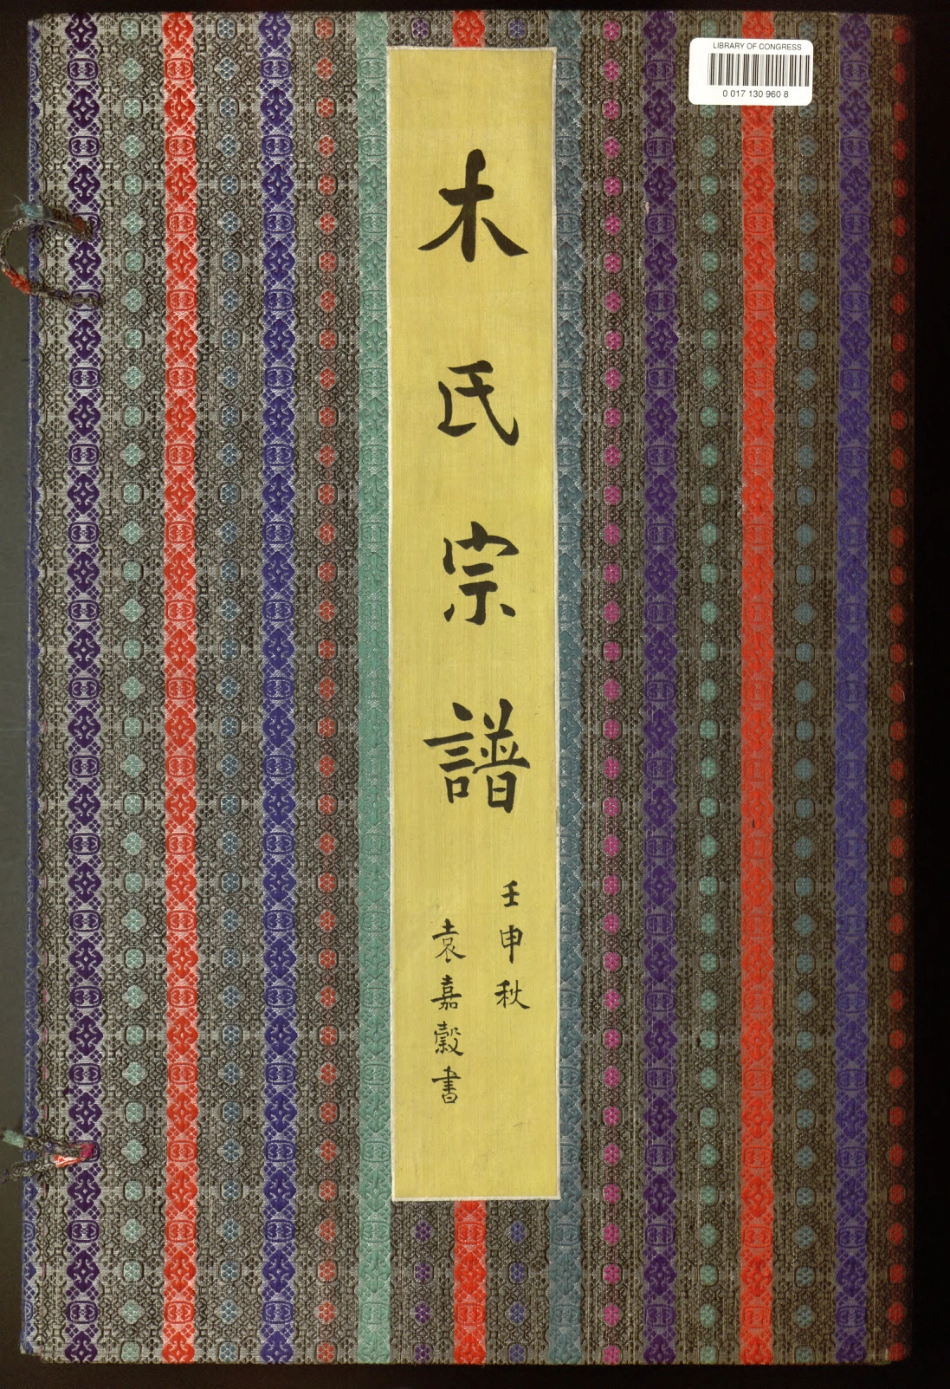 LIBRARY OF CONGRESS
0 017 130 960 8
木氏宗譜
壬申秋
袁嘉穀書